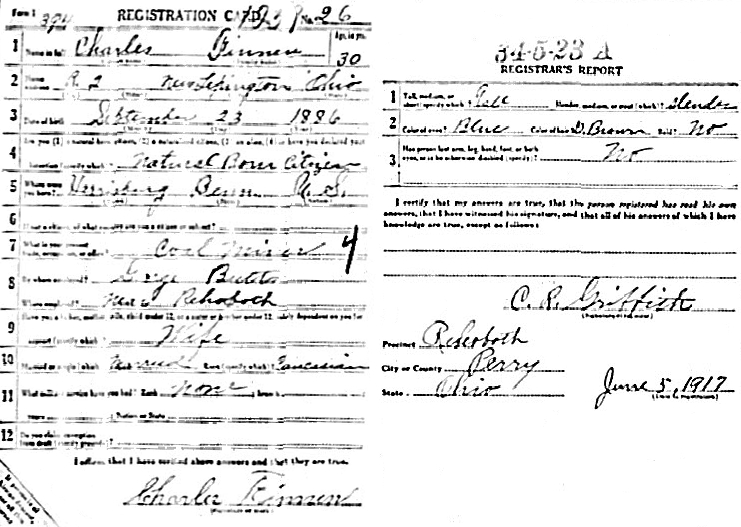 Form 1 394 REGISTRATION CARD No. 26
Age, in yrs.
1 Name in full Charles Finnen 30
2 Home address R. 2 New Lexington Ohio
3 Date of birth September 23 1886
4 Are you (1) a natural born citizen, (2) a naturalized citizen, (3) an alien, (4) or have you declared your
intention (specify which)? Natural Born Citizen
5 Where were you born? Harrisburg Penn U. S.
6 If not a citizen, of what country are you a citizen or subject?
7 What is your present trade, occupation, or office? Coal Miner 4
8 By whom employed?
Where employed? Near Rehoboth
9 Have you a father, mother, wife, child under 12, or a sister or brother under 12, solely dependent on you for
support (specify which)? Wife
10 Married or single (which)? Married Race (specify which)? Caucasian
11 What military service have you had? Rank None branch
years Nation or State
12 Do you claim exemption from draft (specify grounds)?
I affirm that I have verified above answers and that they are true.
Charles Finnen
34-5-23 A
REGISTRAR'S REPORT
1 Tall, medium, or short (specify which)? Tall Slender, medium, or stout (which)? Slender
2 Color of eyes? Blue Color of hair? D. Brown Bald? No
3 Has person lost arm, leg, hand, foot, or both
eyes, or is he otherwise disabled (specify)? No
I certify that my answers are true, that the person registered has read his own
answers, that I have witnessed his signature, and that all of his answers of which I have
knowledge are true, except as follows:
C. P. Griffith
(Signature of registrar)
Precinct Rehoboth
City or County Perry
State Ohio June 5, 1917
(Date of registration)